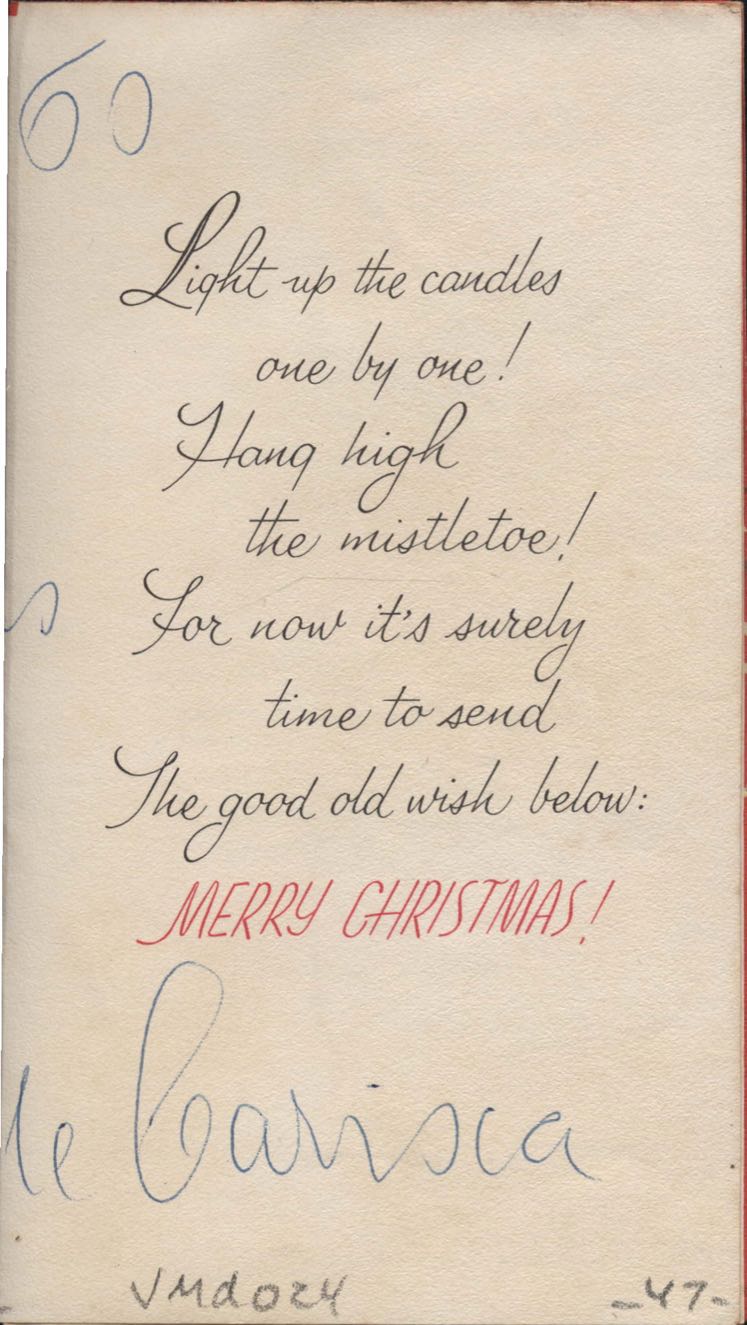 60
Light up the candles
one by one!
Hang high
the mistletoe!
For now it's surely
time to send
The good old wish below:
MERRY CHRISTMAS!
VMdo24
-47-